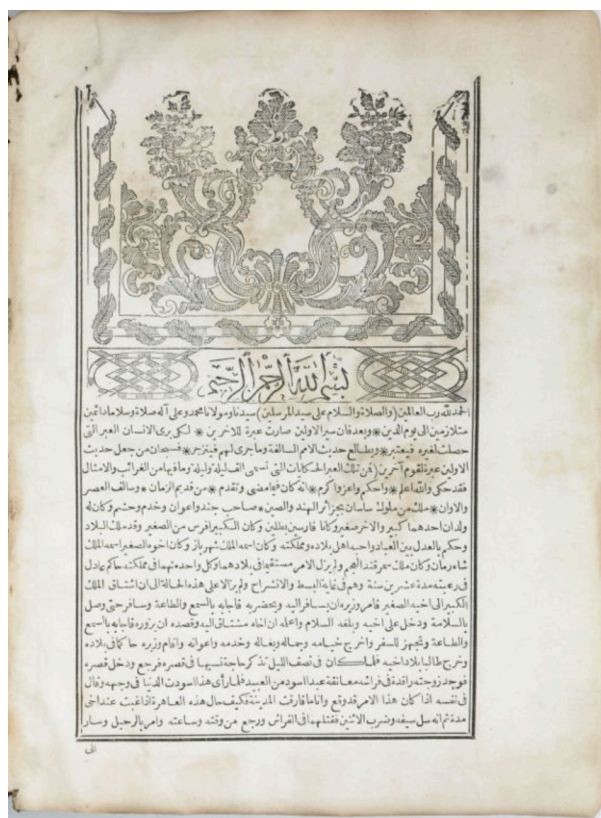 بسم الله الرحمن الرحيم
الحمد لله رب العالمين (والصلاة والسلام على سيد المرسلين) سيدنا ومولانا محمد وعلى آله صلاة وسلاما دائمين
متلازمين الى يوم الدين * وبعد فان سير الاولين صارت عبرة للاخرين * لكي يرى الانسان العبر التي
حصلت لغيره فيعتبر * ويطالع حديث الامم السالفة وما جرى لهم فينزجر * فسبحان من جعل حديث
الاولين عبرة لقوم آخرين (فمن تلك العبر الحكايات التي تسمى الف ليلة وليلة وما فيها من الغرائب والامثال
فقد حكى والله اعلم * واحكم واعز واكرم * انه كان فيما مضى وتقدم * من قديم الزمان * وسالف العصر
والاوان * ملك من ملوك ساسان بجزائر الهند والصين * صاحب جند واعوان وخدم وحشم وكان له
ولدان احدهما كبير والاخر صغير وكانا فارسين بطلين وكان الكبير افرس من الصغير وقد ملك البلاد
وحكم بالعدل بين العباد واحبه اهل بلاده ومملكته وكان اسمه الملك شهرباز وكان اخوه الصغير اسمه الملك
شاه زمان وكان ملك سمرقند العجم ولم يزل الامر مستقيما في بلادهما وكل واحد منهما في مملكته حاكم عادل
في رعيته مدة عشرين سنة وهم في غاية البسط والانشراح ولم يزالا على هذه الحالة الى ان اشتاق الملك
الكبير الى اخيه الصغير فامر وزيره ان يسافر اليه ويحضر به فاجابه بالسمع والطاعة وسافر حتى وصل
بالسلامة ودخل على اخيه وبلغه السلام واعلمه ان اخاه مشتاق اليه وقصده ان يزوره فاجابه بالسمع
والطاعة وتجهز للسفر واخرج خيامه وجماله وبغاله وخدمه واعوانه واقام وزيره حاكما في بلاده
وخرج طالبا بلاد اخيه فلما كان في نصف الليل تذكر حاجة نسيها في قصره فرجع ودخل قصره
فوجد زوجته راقدة في فراشه معانقة عبدا اسود من العبيد فلما رأى هذا اسودت الدنيا في وجهه وقال
في نفسه اذا كان هذا الامر قد وقع وانا ما فارقت المدينة فكيف حال هذه العاهرة اذا غبت عند اخي
مدة ثم انه سل سيفه وضرب الاثنين فقتلهما في الفراش ورجع من وقته وساعته وامر بالرحيل وسار
الى